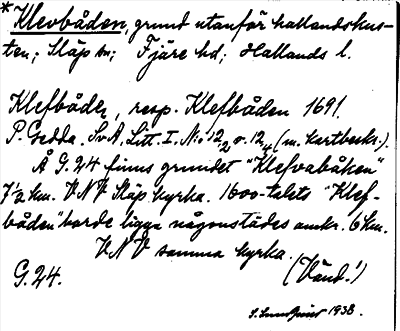 * Klevbåden, grund utanför hallandskus-
ten; Släp sn; Fjäre hd; Hallands l.
Klefbåde, resp. Klefbåden 1691.
P. Gedda. SvA, Litt. I. No: 12,2 o. 12,4 (m. kartbeskr.).
Å G.24 finns grundet "Klefvabåken"
7½ km. VNV Släp kyrka. 1600-talets "Klef-
båden" borde ligga någonstädes omkr. 6 km.
VNV samma kyrka.
G.24. (Vänd!)
1938.